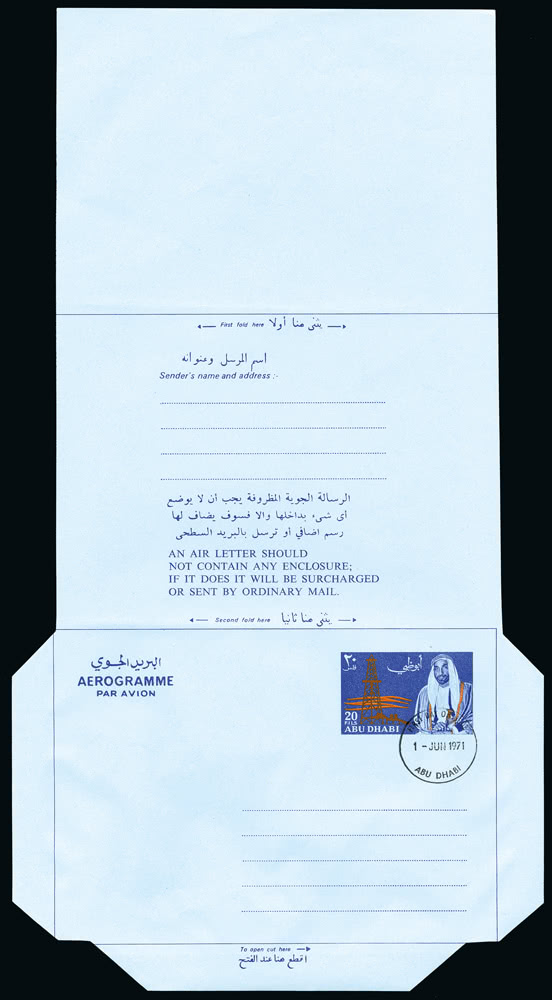 First fold here يثنى هنا أولا
اسم المرسل وعنوانه
Sender's name and address :-
الرسالة الجوية المظروفة يجب ان لا يوضع
أى شىء بداخلها والا فسوف يضاف لها
رسم اضافي أو ترسل بالبريد السطحى
AN AIR LETTER SHOULD
NOT CONTAIN ANY ENCLOSURE;
IF IT DOES IT WILL BE SURCHARGED
OR SENT BY ORDINARY MAIL.
Second fold here يثنى هنا ثانيا
البريد الجوي
AEROGRAMME
PAR AVION
٢٠ فلس
أبوظبي
20
FILS
ABU DHABI
1 - JUN 1971
ABU DHABI
To open cut here
اقطع هنا عند الفتح